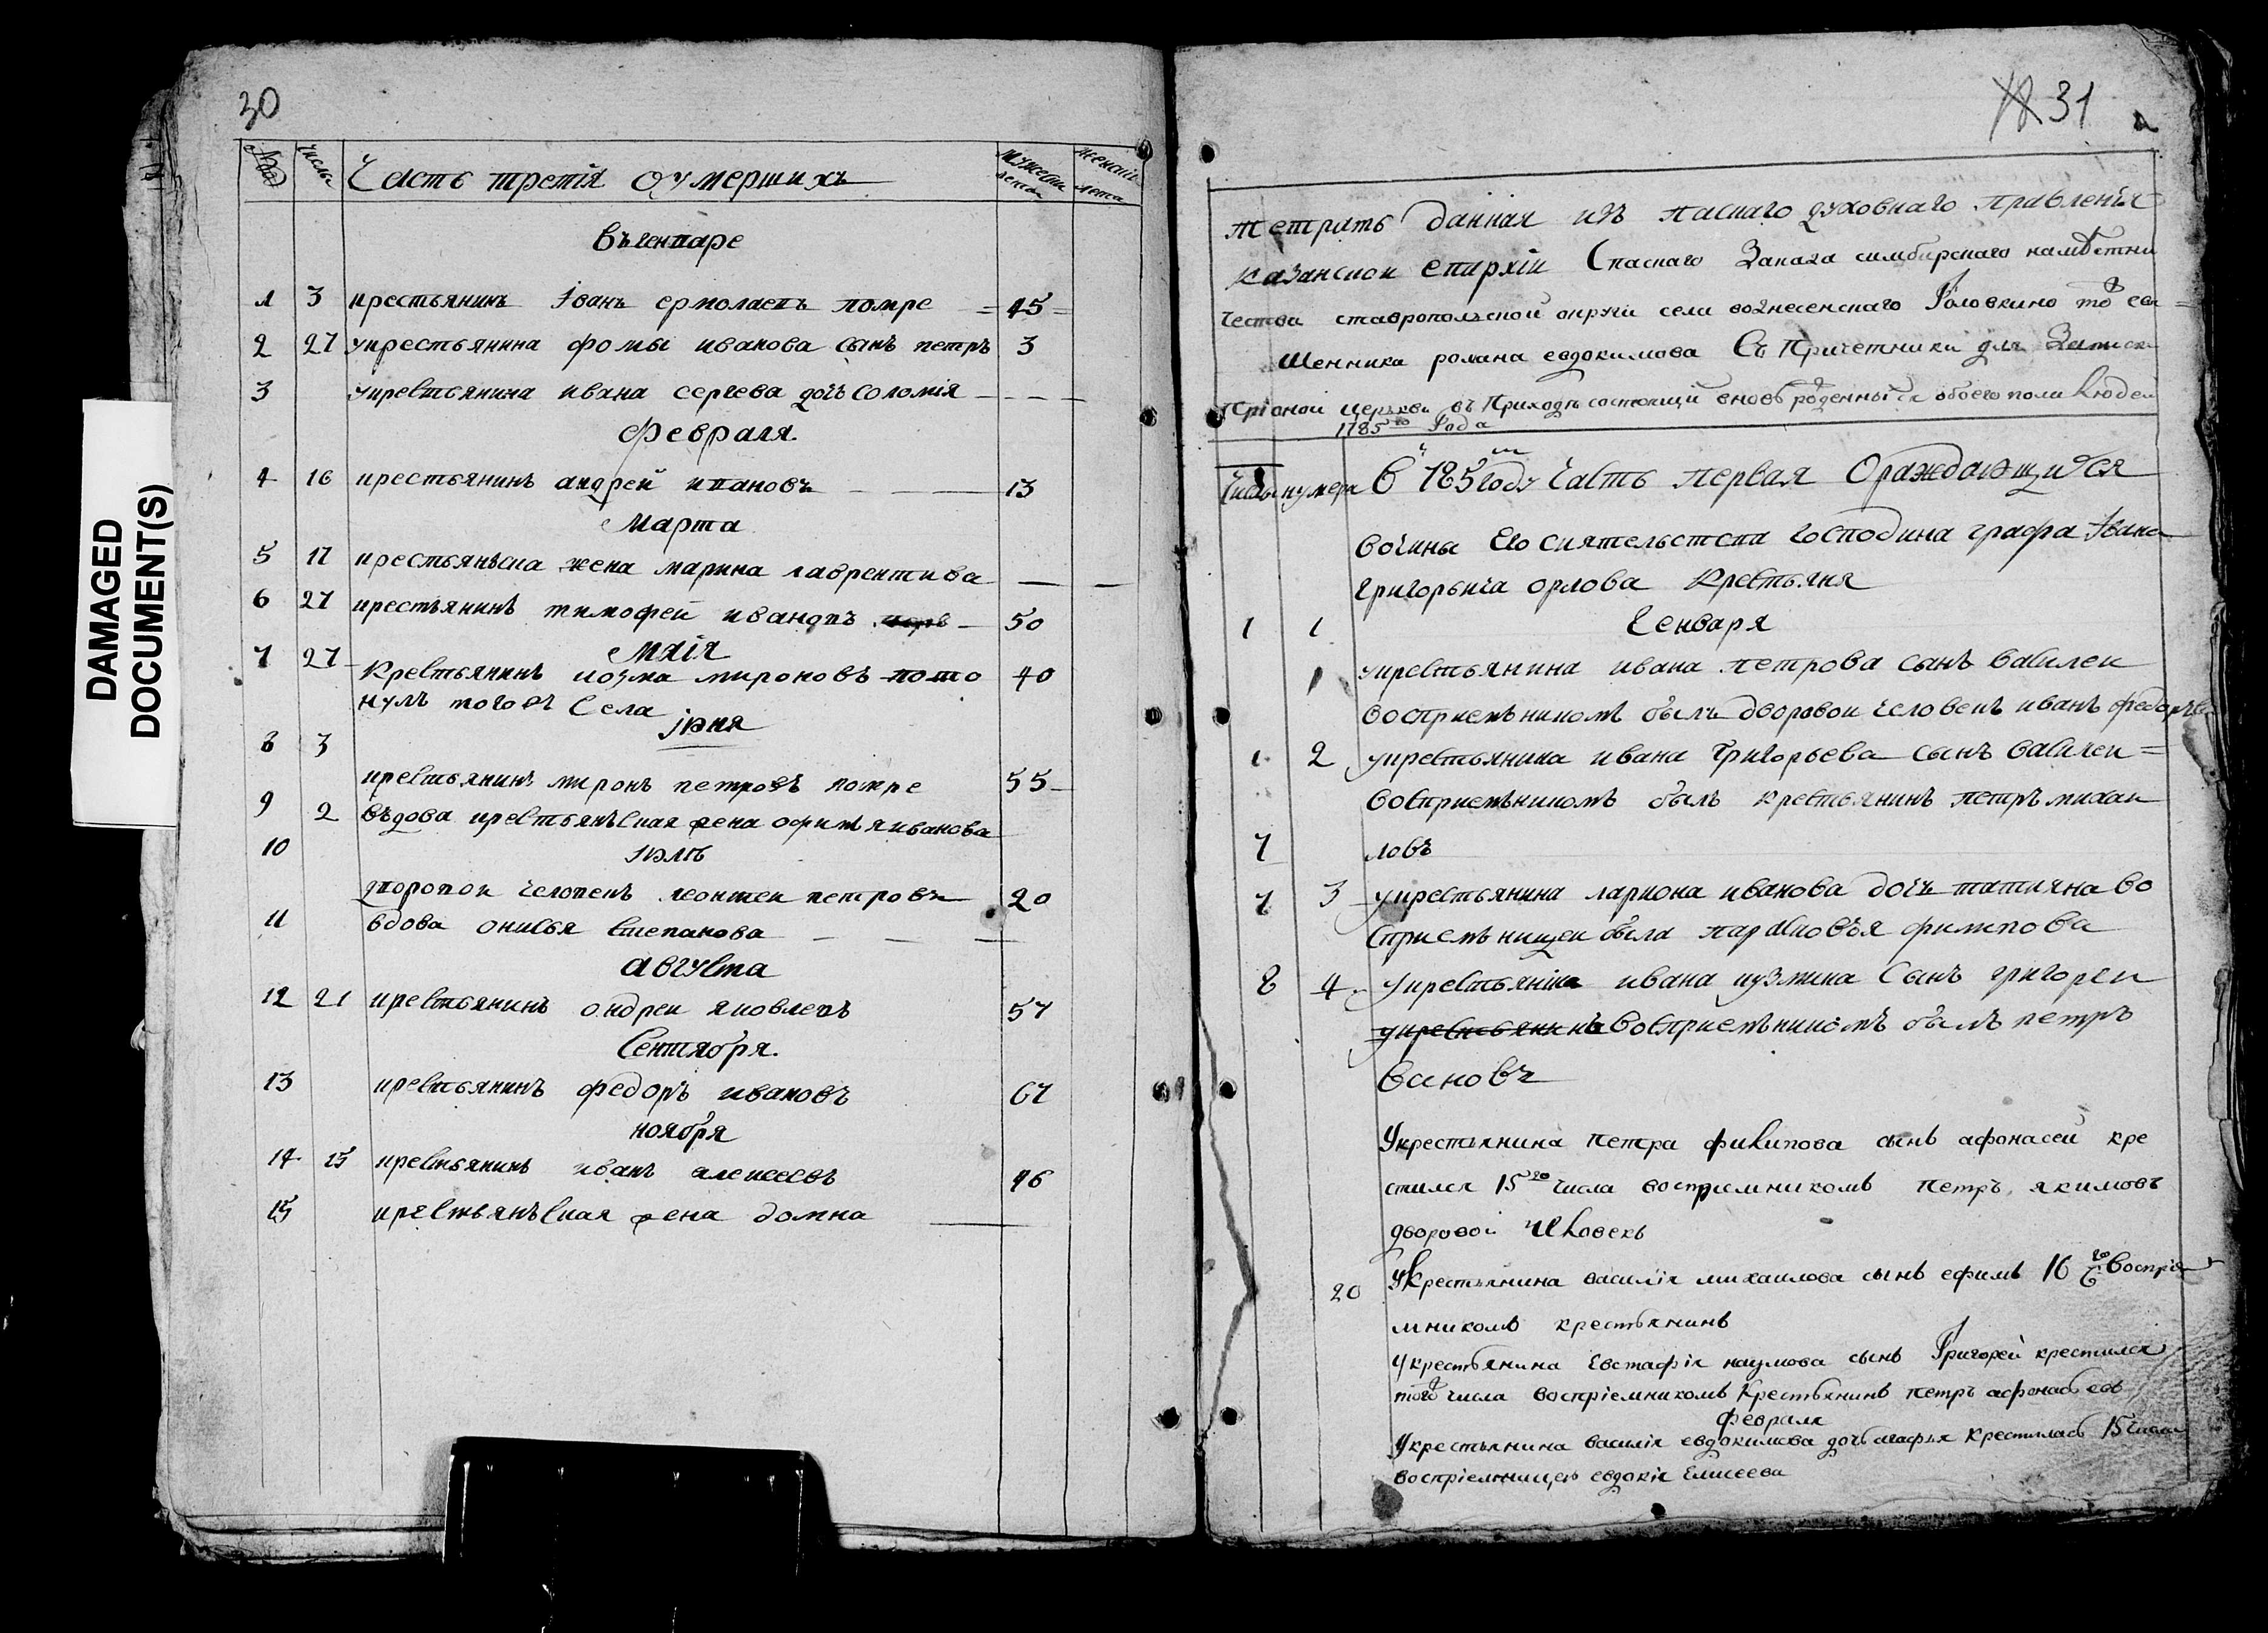 DAMAGED
DOCUMENT(S)
30
числы
Часть третия оумершихъ
мужеска лета
женски лета
въгенваре
1 3 крестьянинъ Iванъ ермолаевъ помре = 45 =
2 27 укрестьянина фомы иванова сынъ петръ 3
3 укрестьянина ивана сергева дочь соломия
февраля.
4 16 крестьянинъ андрей ивановъ 13
Марта
5 17 крестьянъска жена марина лаврентива
6 27 крестьянинъ тимофей ивановъ 50
Маiя
7 27 Крестьянинъ козма мироновъ пото 40
нулъ тогожъ Села
iюня
8 3
крестьянинъ миронъ петровъ помре 55
9 2 въдова крестьянъская жена офимя иванова
10 iюль
дворовои человекъ леонтеи петровъ 20
11 вдова онисья степанова
августа
12 21 крестьянинъ ондреи яковлевъ 57
Сентября.
13 крестьянинъ федоръ ивановъ 67
ноября
14 15 крестьянинъ иванъ алексеевъ 46
15 крестьянъская жена домна
31
тетрать данная изъ паскаго духовнаго правления
казанскои епархiи Спаскаго Заказа симбирскаго наместни
чества ставропольской округи села вознесенскаго Головкино тожъ свя =
щенника романа евдокимова Съ Причетники для Записки
Прионой церькви въ Приходъ состоящий вновь рожденныхъ обоего пола Людей
1785го Года
Числы нумера В 1785м году Часть первая Ораждающихся
вочины Его сиятельства господина графа Iвана
григорьича орлова Крестьяня
1 1 Генваря
укрестьянина ивана петрова сынъ василеи
восприемъникомъ былъ дворовои человекъ иванъ федоровъ
1 2 укрестьянина ивана Григорьева сынъ василеи =
восприемъникомъ былъ крестьянинъ петръ михаи
7 ловъ
7 3 укрестьянина лариона иванова дочь татияна во
сприемъницеи была парасковъя филипова
8 4 укрестьянина ивана кузмина Сынъ григореи
укрестьянина восприемъникомъ былъ петръ
вановъ
Укрестьянина петра филипова сынъ афонасей кре
стился 15го числа воспремникомъ петръ якимовъ
дворовой человекъ
20 Укрестьянина василiя михаилова сынъ ефимъ 16го воспрiе
мникомъ крестьянинъ
Укрестьянина евстафiя наумова сынъ Григорей крестился
того числа воспрiемникомъ крестьянинъ петръ афонасьевъ
февраля
Укрестьянина василiя евдокимова дочь агафья крестилась 15 числа
воспрiемницею евдокiя Елисеева